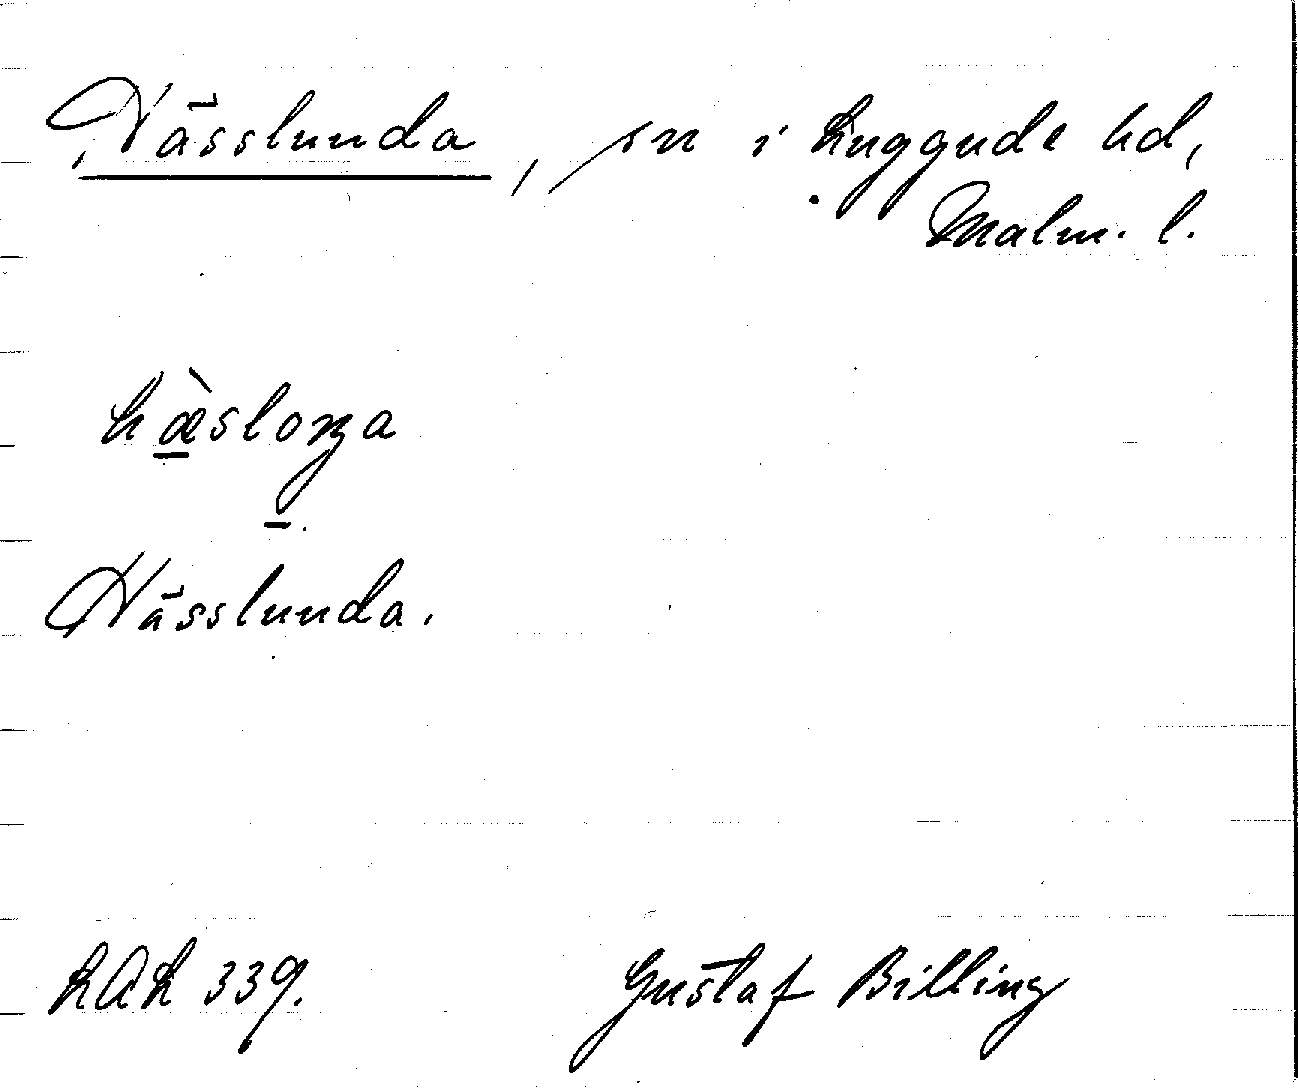 Hässlunda, sn i Luggude hd,
Malm. l.
Hässlunda.
LAL 339.
Gustaf Billing